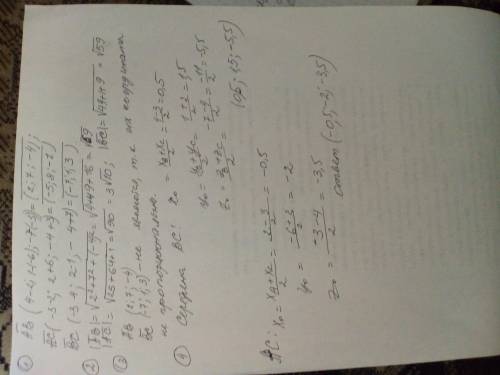 ① AB (4-2; 1-(-6); -7-(-3)) = (2; 7; -4);
AC (-3-2; 2+6; -4+3) = (-5; 8; -2)
BC (-3-4; 2-1; -4+7) = (-7; 1; 3)
② |AB| = √2²+7²+(-4)² = √4+49+16 = √69
|AC| = √25+64+1 = √90 = 3√10; |BC| = √49+1+9 = √59
③ AB (2; 7; -4)
BC (-7; 1; 3) - не
т.к их координаты
не пропорциональны.
④ Середина BC: x₀ = (xB+xC)/2 = (4-3)/2 = 0,5
y₀ = (yB+yC)/2 = (1+2)/2 = 1,5
z₀ = (zB+zC)/2 = (-7-4)/2 = -11/2 = -5,5
(0,5; 1,5; -5,5)
AC: x₀ = (xA+xC)/2 = (2-3)/2 = -0,5
y₀ = (-6+2)/2 = -2
z₀ = (-3-4)/2 = -3,5
ответ (-0,5; -2; -3,5)